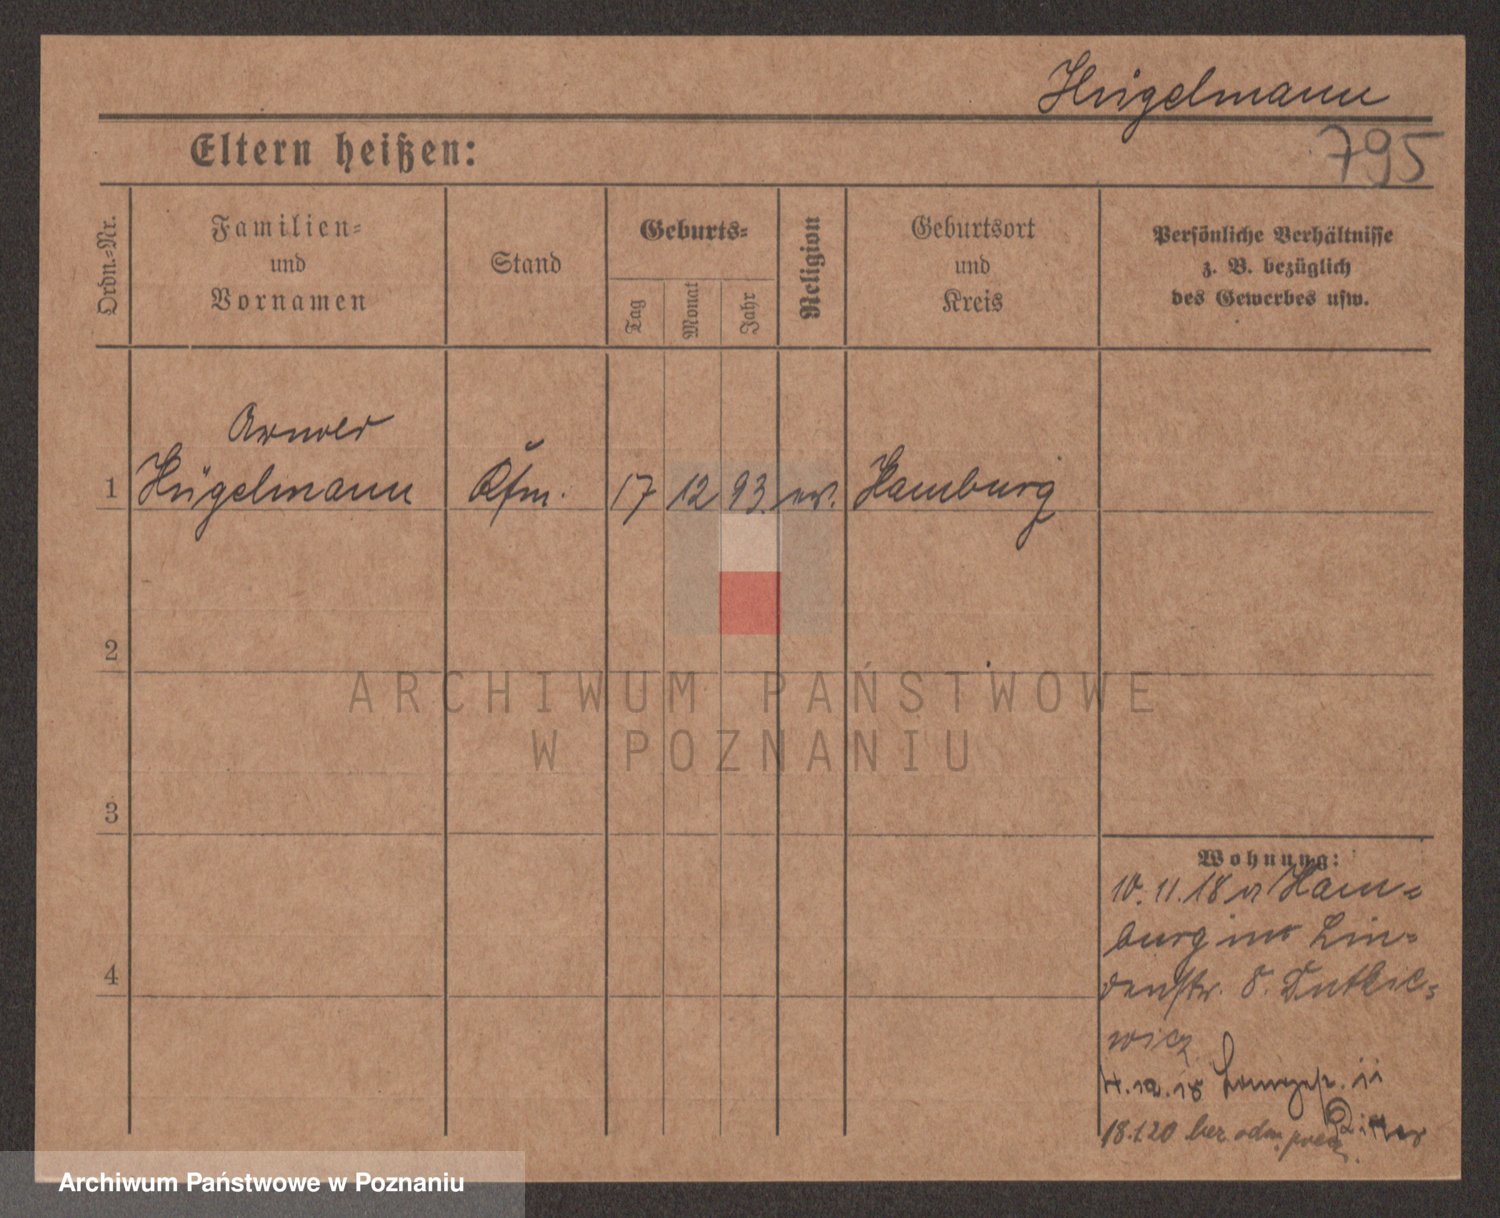 Hügelmann
795
Eltern heißen:
Ordn.-Nr.
Familien-
und
Vornamen
Stand
Geburts-
Tag
Monat
Jahr
Religion
Geburtsort
und
Kreis
Persönliche Verhältnisse
z. B. bezüglich
des Gewerbes usw.
Arnold
1 Hügelmann Kfm. 17 12 93. ev. Hamburg
2
ARCHIWUM PAŃSTWOWE
W POZNANIU
3
4
Wohnung:
10.11.18 Ham-
burg Lin-
denstr. 8. Dutkie-
wicz
11
18.1.20
Archiwum Państwowe w Poznaniu